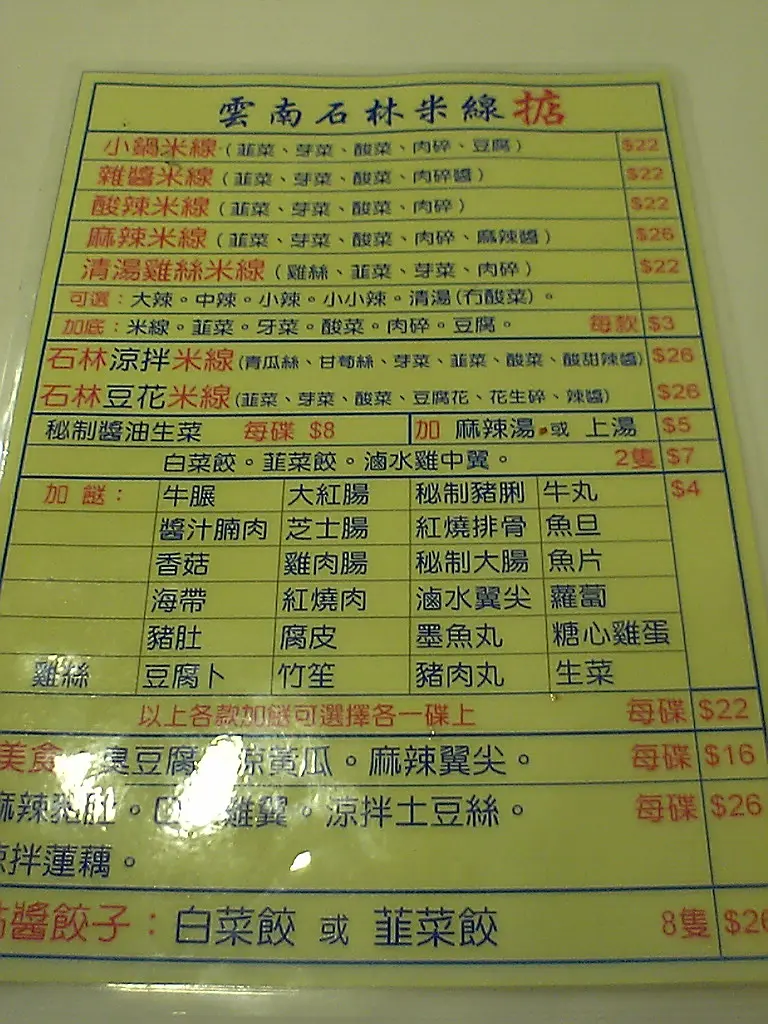 雲南石林米線掂
小鍋米線（韮菜、芽菜、酸菜、肉碎、豆腐） $22
雜醬米線（韮菜、芽菜、酸菜、肉碎醬） $22
酸辣米線（韮菜、芽菜、酸菜、肉碎） $22
麻辣米線（韮菜、芽菜、酸菜、肉碎、麻辣醬） $26
清湯雞絲米線（雞絲、韮菜、芽菜、肉碎） $22
可選：大辣。中辣。小辣。小小辣。清湯(冇酸菜)。
加底：米線。韮菜。牙菜。酸菜。肉碎。豆腐。 每款 $3
石林涼拌米線(青瓜絲、甘荀絲、芽菜、韮菜、酸菜、酸甜辣醬) $26
石林豆花米線(韮菜、芽菜、酸菜、豆腐花、花生碎、辣醬) $26
秘制醬油生菜 每碟 $8 加 麻辣湯 或 上湯 $5
白菜餃。韮菜餃。滷水雞中翼。 2隻 $7
加餸： 牛𦟌 大紅腸 秘制豬脷 牛丸 $4
醬汁腩肉 芝士腸 紅燒排骨 魚旦
香菇 雞肉腸 秘制大腸 魚片
海帶 紅燒肉 滷水翼尖 蘿蔔
豬肚 腐皮 墨魚丸 糖心雞蛋
雞絲 豆腐卜 竹笙 豬肉丸 生菜
以上各款加餸可選擇各一碟上 每碟 $22
美食 臭豆腐 涼黃瓜。麻辣翼尖。 每碟 $16
麻辣豬肚。 雞翼。涼拌土豆絲。 每碟 $26
涼拌蓮藕。
醬餃子：白菜餃 或 韮菜餃 8隻 $26